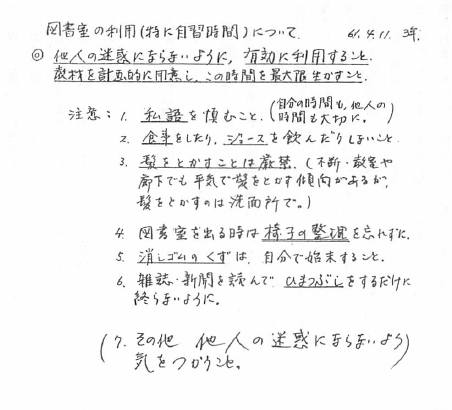 図書室の利用(特に自習時間)について 61.4.11. 3年.
◎ 他人の迷惑にならないように, 有効に利用すること.
教材を計画的に用意し, この時間を最大限生かすこと.
注意: 1. 私語を慎むこと. (自分の時間も, 他人の
時間も大切に。)
2. 食事をしたり, ジュースを飲んだりしないこと.
3. 髪をとかすことは厳禁. (不断・教室や
廊下でも平気で髪をとかす傾向があるが,
髪をとかすのは洗面所で。)
4. 図書室を出る時は椅子の整理を忘れずに.
5. 消しゴムのくずは, 自分で始末すること.
6. 雑誌・新聞を読んで ひまつぶしをするだけに
終らないように。
(7. その他 他人の迷惑にならないよう
気をつかうこと。)